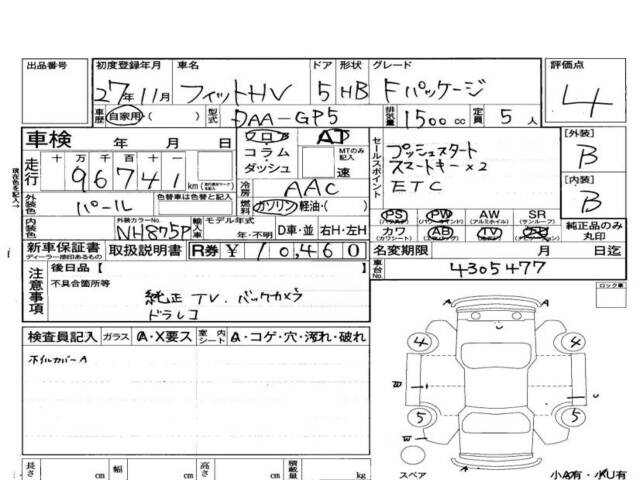 出品番号 初度登録年月 車名 ドア 形状 グレード 評価点
27年11月 フィットHV 5 HB Fパッケージ 4
車歴 自家用・( ) 型式 DAA-GP5 排気量 1500cc 定員 5人
車検 年 月 日 フロア・コラム・ダッシュ AT MTのみ記入 速
走行 十 万 千 百 十 一
96741 km
セールスポイント
プッシュスタート
スマートキー×2
ETC
[外装] B
[内装] B
外装色 パール 色替車は色替と記入
冷房 AAC
燃料 ガソリン・軽油・( )
内装色 外装カラーNo. NH875P 輸入車 モデル年式 年・不明 D車・並 右H・左H
PS PW AW SR
(パワステ) (パワーウインド) (アルミホイル) (サンルーフ)
カワ AB TV
(カワシート) (エアバッグ)
純正品のみ丸印
新車保証書 取扱説明書 R券 ¥10,460 名変期限 月 日迄
ディーラー捺印あるもの
現在色を記入→
注意事項 後日品【 】
不具合箇所等
純正TV.バックカメラ
ドラレコ
車台No. 4305477
ロック車
検査員記入 ガラス A・X要ス 室内シート A・コゲ・穴・汚れ・破れ
ホイルカバーA
A A
4 4
U
5 5
スペア
A A
長さ cm 幅 cm 高さ cm 積載量 kg
小A有・小U有